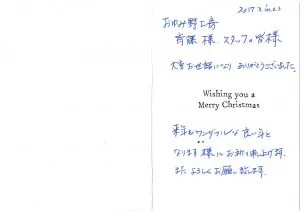 おゆみ野工房
斉藤 様、スタッフの皆様
大変お世話になり ありがとうございました。
Wishing you a
Merry Christmas
来年もワンダフルな良い年と
なります様にお祈り申し上げます。
また よろしくお願い致します。